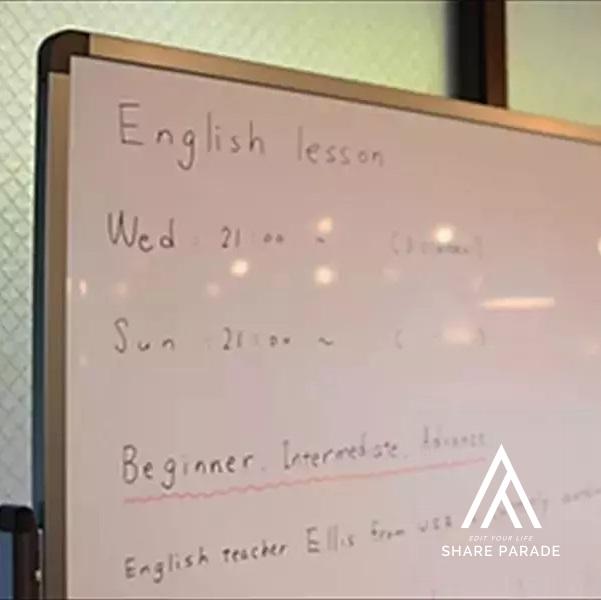 English lesson
Wed : 21:00 ~
Sun : 21:00 ~
Beginner. Intermediate. Advance
English teacher Ellis from USA
EDIT YOUR LIFE
SHARE PARADE